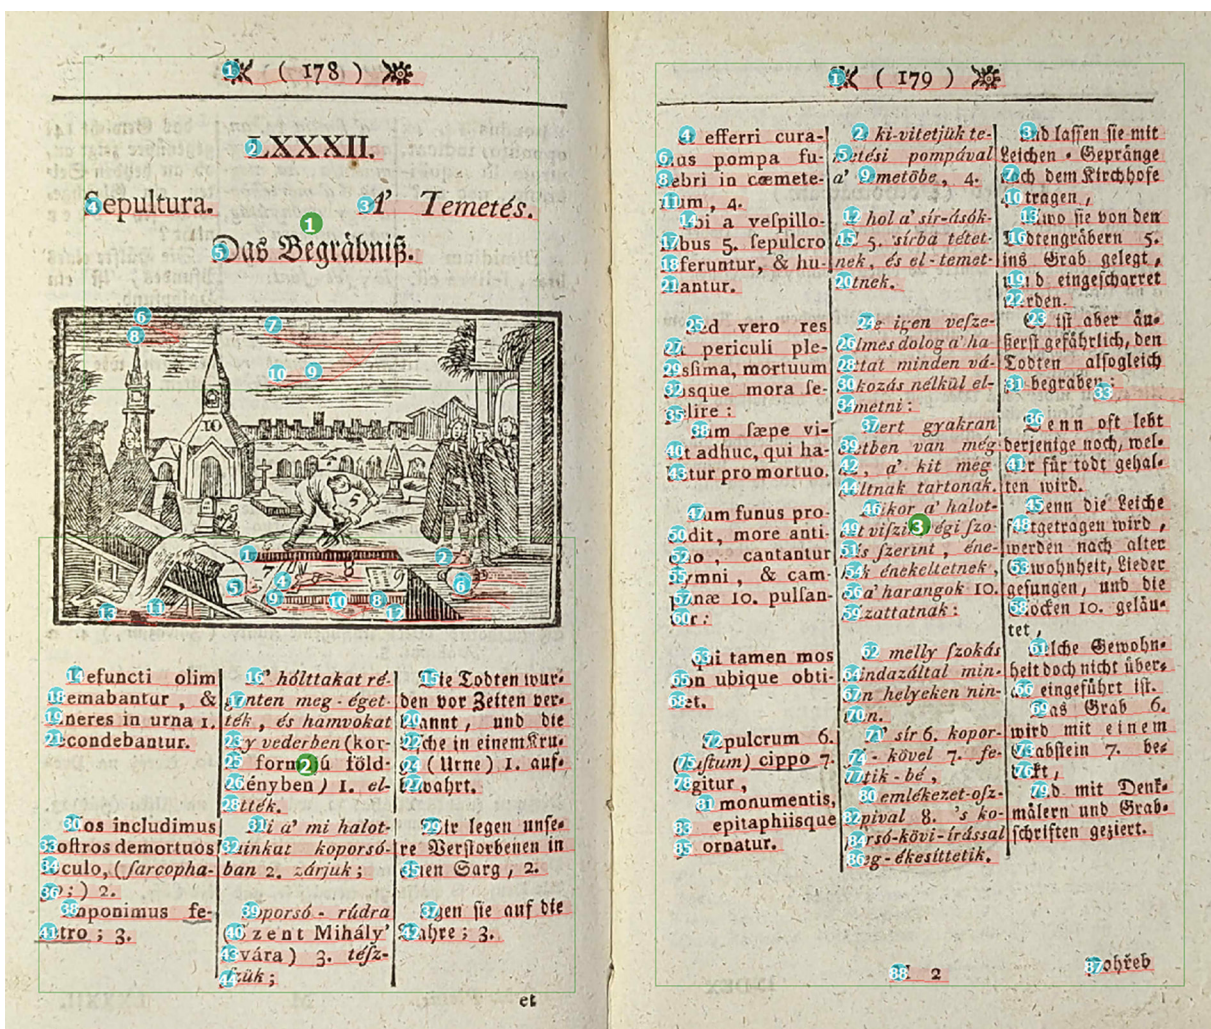 ( 178 )
LXXXII.
Sepultura.
A' Temetés.
Das Begräbniß.
Defuncti olim
cremabantur, &
cineres in urna 1.
recondebantur.
Nos includimus
noſtros demortuos
loculo, (ſarcopha-
go;) 2.
Imponimus fe-
retro; 3.
A' hólttakat ré-
genten meg-éget-
ték, és hamvokat
egy vederben (kor-
só formájú föld-
edényben) 1. el-
tették.
Mi a' mi halot-
tainkat koporsó-
ban 2. zárjuk;
koporsó-rúdra
(Szent Mihály'
lovára) 3. téſz-
ſzük;
Die Todten wur-
den vor Zeiten ver-
brannt, und die
Aſche in einem Kru-
ge (Urne) 1. auf-
bewahrt.
Wir legen unſe-
re Verſtorbenen in
einen Sarg, 2.
legen ſie auf die
Bahre; 3.
et
( 179 )
et efferri cura-
mus pompa fu-
nebri in cœmete-
rium, 4.
ubi a veſpillo-
nibus 5. ſepulcro
inferuntur, & hu-
mantur.
Sed vero res
eſt periculi ple-
niſſima, mortuum
absque mora ſe-
pelire:
Cum ſæpe vi-
vit adhuc, qui ha-
betur pro mortuo.
Cum funus pro-
dit, more anti-
quo, cantantur
hymni, & cam-
panæ 10. pulſan-
tur:
qui tamen mos
non ubique obti-
net.
Sepulcrum 6.
(buſtum) cippo 7.
tegitur,
monumentis,
epitaphiisque
ornatur.
és ki-vitetjük te-
metési pompával
a' temetöbe, 4.
a' hol a' sír-ásók-
tól 5. sírba tétet-
nek, és el-temet-
tetnek.
De igen veſze-
delmes dolog a' ha-
lottat minden vá-
rakozás nélkül el-
temetni:
Mert gyakran
életben van még
az, a' kit meg
hóltnak tartonak.
Mikor a' halot-
tat viſzik, régi ſzo-
kás ſzerint, éne-
kek énekeltetnek,
's a' harangok 10.
húzattatnak:
melly ſzokás
mindazáltal min-
den helyeken nin-
tsen.
A' sír 6. kopor-
só-kövel 7. fe-
detik-bé,
emlékezet-oſz-
lopival 8. 's ko-
porsó-kövi-írással
meg-ékesíttetik.
und laſſen ſie mit
Leichen-Gepränge
nach dem Kirchhofe
4. tragen,
wo ſie von den
Todtengräbern 5.
ins Grab gelegt,
und eingeſcharret
werden.
Es iſt aber äu-
ßerſt gefährlich, den
Todten alſogleich
zu begraben:
Denn oft lebt
derjenige noch, wel-
cher für todt gehal-
ten wird.
Wenn die Leiche
fortgetragen wird,
werden nach alter
Gewohnheit, Lieder
geſungen, und die
Glocken 10. geläu-
tet,
welche Gewohn-
heit doch nicht über-
all eingeführt iſt.
Das Grab 6.
wird mit einem
Grabſtein 7. be-
deckt,
und mit Denk-
mälern und Grab-
ſchriften geziert.
2
Pohřeb